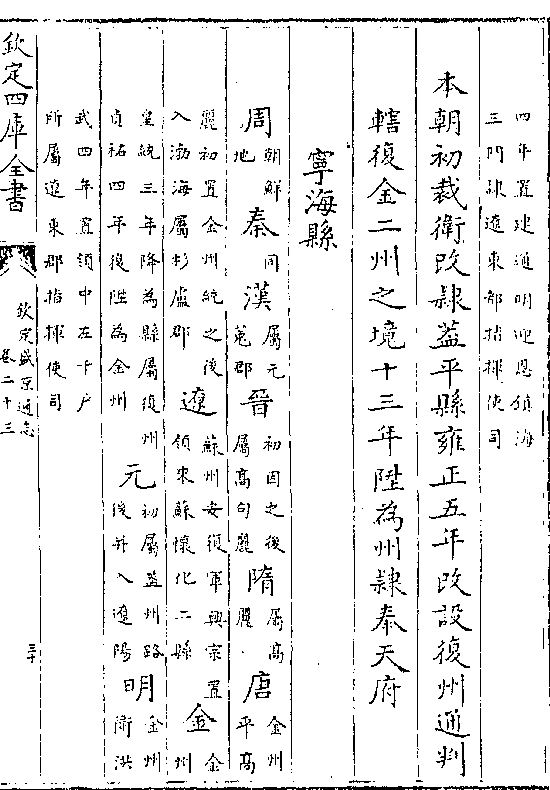 四年置建通明迎恩鎮海
三門隸遼東都指揮使司
本朝初裁衛改隸蓋平縣雍正五年改設復州通判
轄復金二州之境十三年陞為州隸奉天府
寧海縣
周朝鮮地秦同漢屬元菟郡晉初因之後屬高句麗隋屬高麗唐金州平高
麗初置金州統之後入渤海屬杉盧郡遼蘇州安復軍興宗置領來蘇懷化二縣金金州
皇統三年降為縣屬復州貞祐四年復陞為金州元初屬蓋州路後并入遼陽明金州衛洪
武四年置領中左千户
所屬遼東都指揮使司
欽定四庫全書
欽定盛京通志
卷二十三